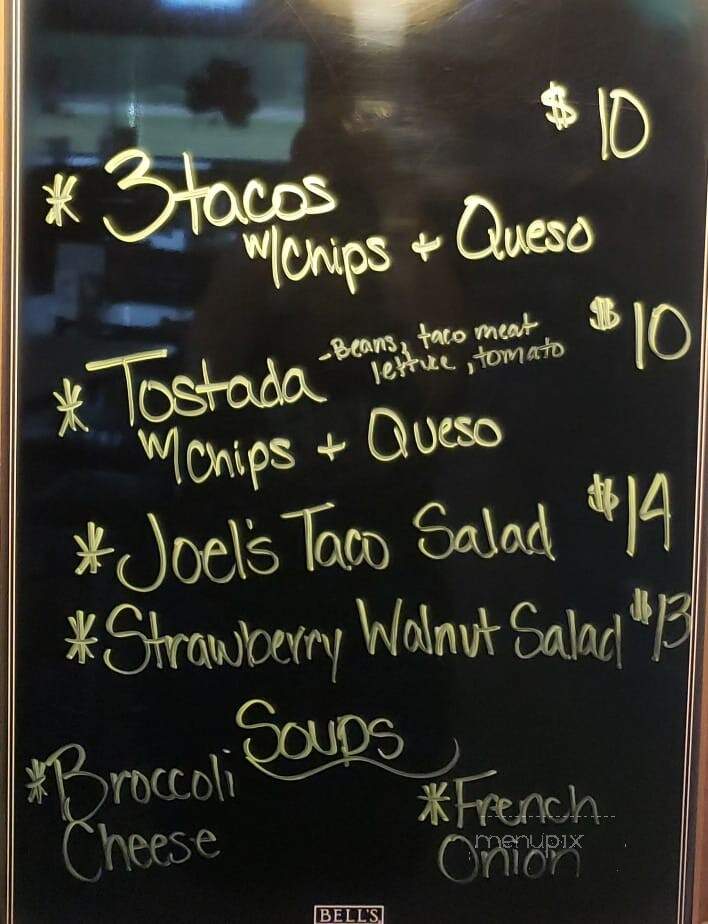 $10
* 3 tacos
w/chips + Queso
* Tostada -Beans, taco meat $10
lettuce, tomato
w/chips + Queso
* Joel's Taco Salad $14
* Strawberry Walnut Salad $13
Soups
* Broccoli
Cheese
* French
Onion
menupix
BELL'S